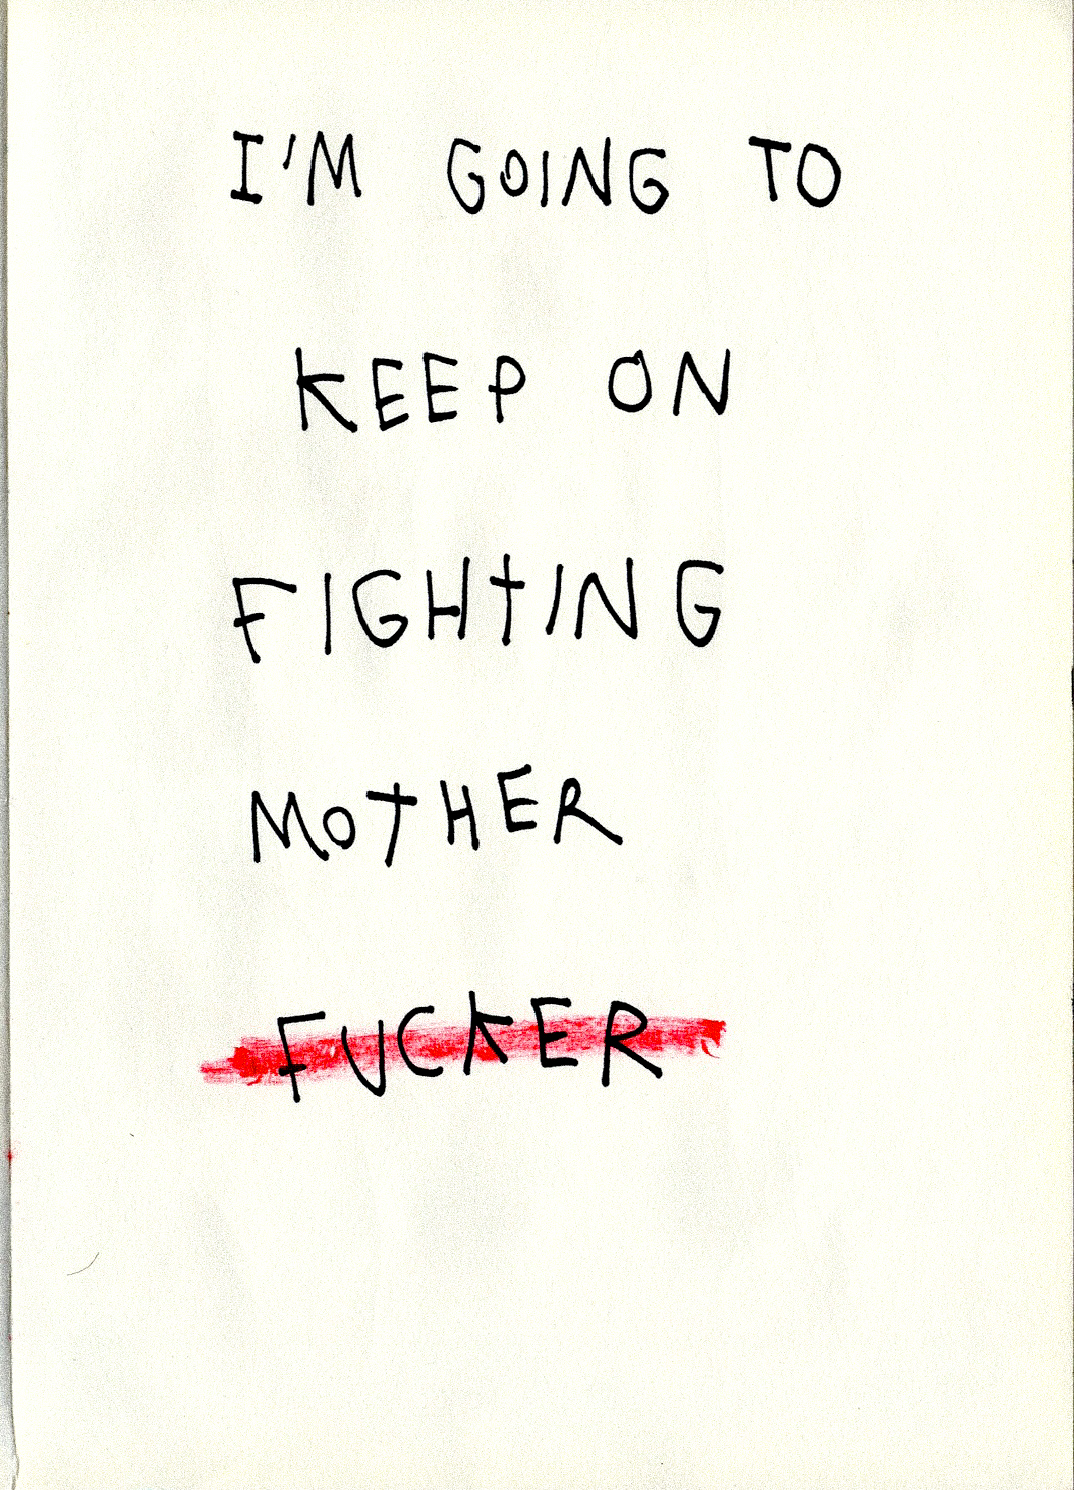 I'M GOING TO
KEEP ON
FIGHTING
MOTHER
FUCKER